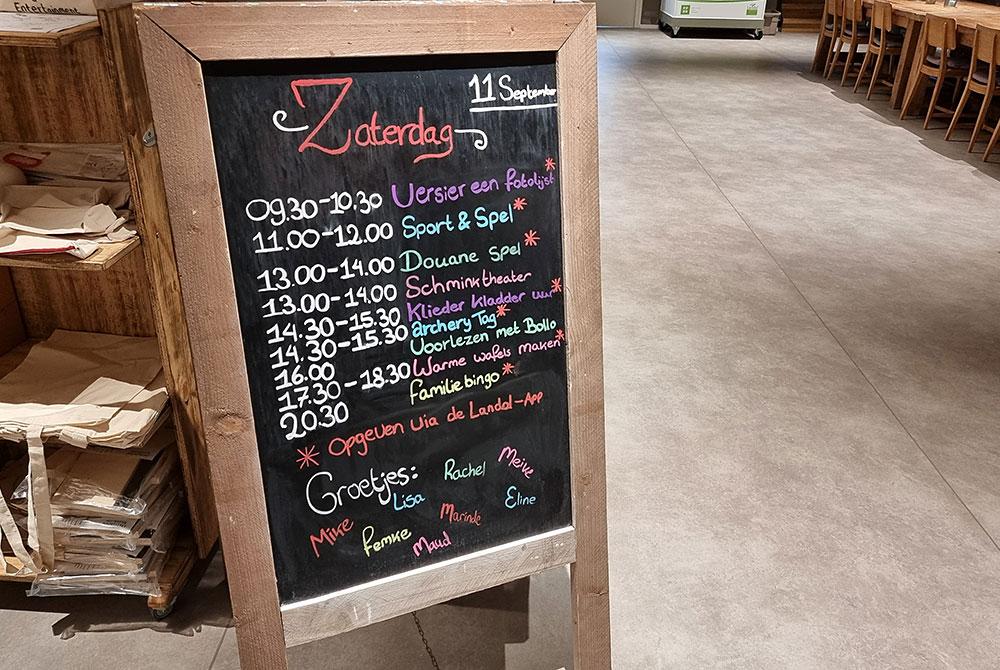 Entertainment
11 September
Zaterdag
09.30-10.30 Versier een fotolijst*
11.00-12.00 Sport & Spel*
13.00-14.00 Douane Spel*
13.00-14.00 Schminktheater
14.30-15.30 Klieder kladder uur*
14.30-15.30 archery Tag*
16.00 Voorlezen met Bollo
17.30-18.30 Warme wafels maken*
20.30 familiebingo*
* Opgeven via de Landal-App
Groetjes: Rachel Meive
Lisa Marinde Eline
Mike Femke Maud